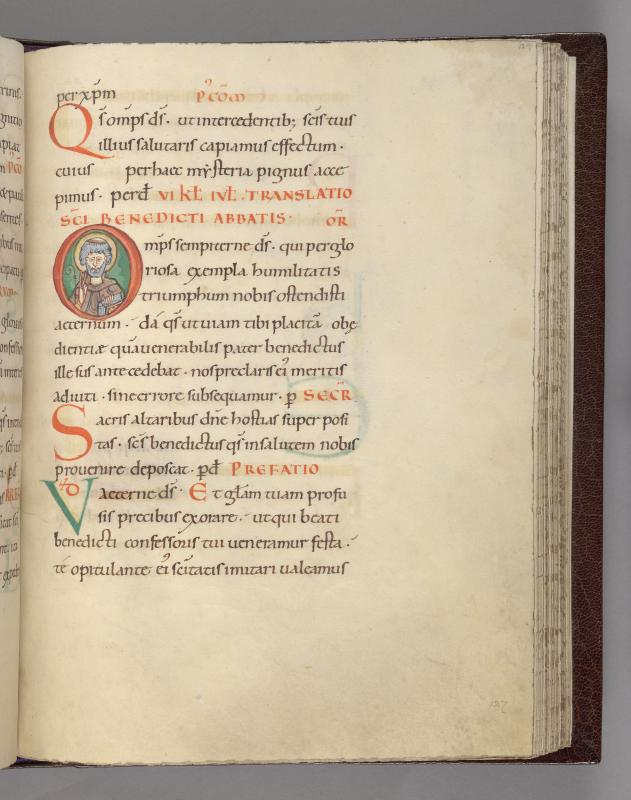 per xp̄m P̊ CŌM
Q s̄ omp̄s d̄s. ut intercedentib; sc̄is tuis
illius salutaris capiamus effectum.
cuius per haec mẏsteria pignus acce
pimus. per ed̄ VI KL̄ IVL̄. TRANSLATIO
SC̄I BENEDICTI ABBATIS. OR̄
O mp̄s sempiterne d̄s. qui per glo
riosa exempla humilitatis
triumphum nobis ostendisti
aeternum. dá q̄s ut uiam tibi placitā obę
dientiæ qua uenerabilis pater benedictus
illesus antecedebat. nos preclaris ei᾿ meritis
adiuti. sine errore subsequamur. p̄ SECR̄
S acris altaribus dn̄e hostias super posi
tas. sc̄s benedictus q̄s in salutem nobis
prouenire deposcat. p ed̄ PREFATIO
VD aeterne d̄s. Et gl̄am tuam profu
sis precibus exorare. ut qui beati
benedicti confessoris tui ueneramur festa.
te opitulante. ei᾿ sc̄itatis imitari ualeamus
157